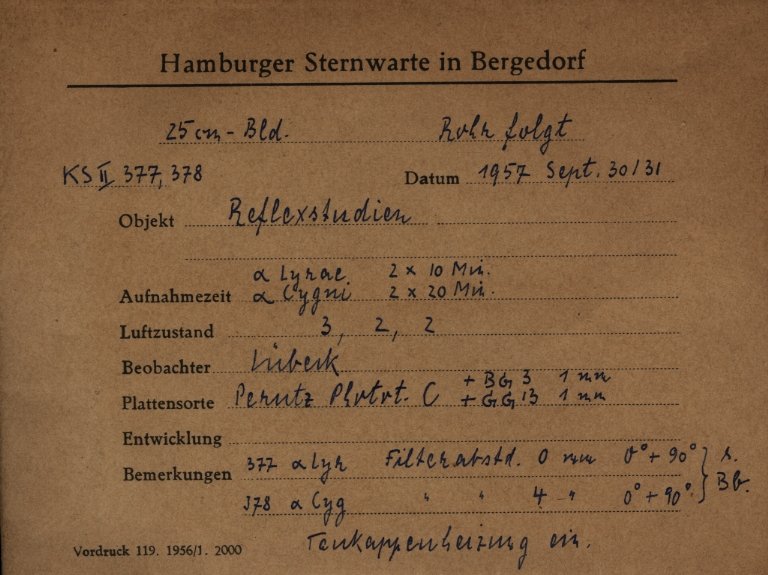 Hamburger Sternwarte in Bergedorf
25cm-Bld. Rohr folgt
KS II 377, 378 Datum 1957 Sept. 30/31
Objekt Reflexstudien
α Lyrae 2 x 10 Min.
Aufnahmezeit α Cygni 2 x 20 Min.
Luftzustand 3, 2, 2
Beobachter Lübeck
+ BG 3 1 mm
Plattensorte Perutz Phot. C + GG 13 1 mm
Entwicklung
Bemerkungen 377 α Lyr Filterabstd. 0 mm 0° + 90° } s.
378 α Cyg " " 4 " 0° + 90° } Bb.
Taukappenheizung ein.
Vordruck 119. 1956/1. 2000